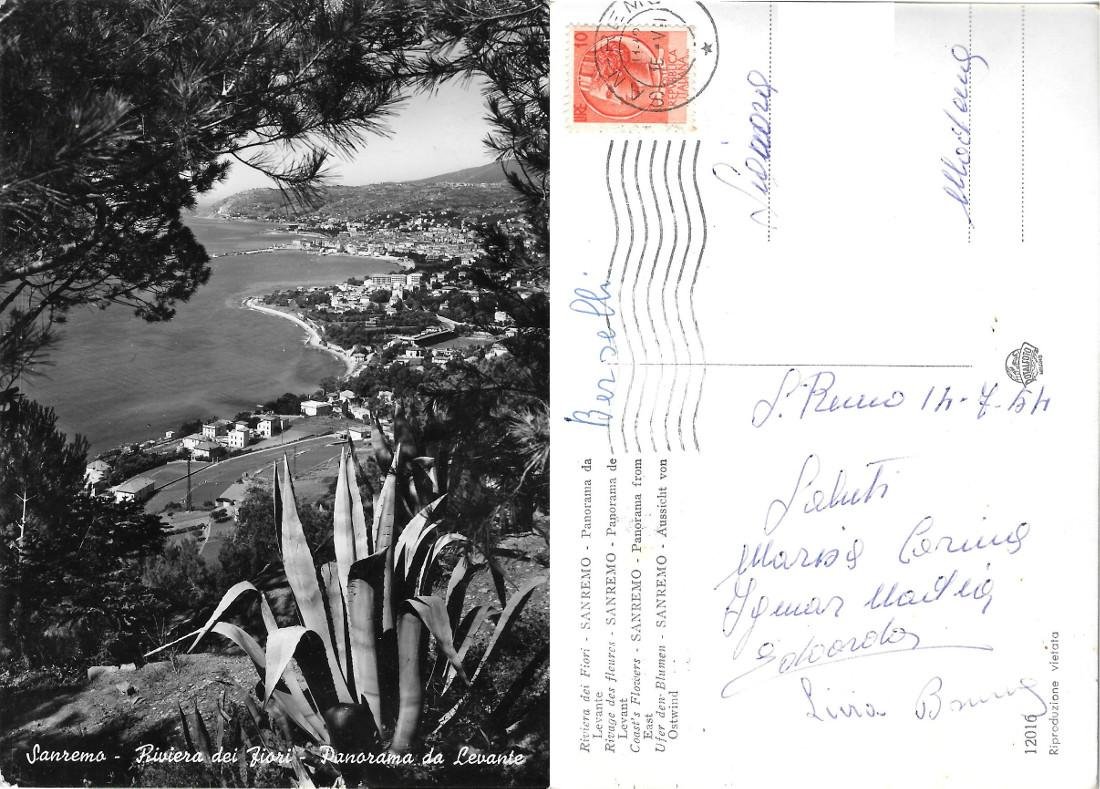 Sanremo - Riviera dei Fiori - Panorama da Levante
LIRE 10
REPVBBLICA
ITALIANA
Signora
Modena
Berselli
S. Remo 14-7-54
Saluti
Marisa
Edoardo
Livia Bruna
Riviera dei Fiori - SANREMO - Panorama da
Levante
Rivage des fleures - SANREMO - Panorama de
Levant
Coast's Flowers - SANREMO - Panorama from
East
Ufer den Blumen - SANREMO - Aussicht von
Ostwind
12016
Riproduzione vietata
ROTALFOTO